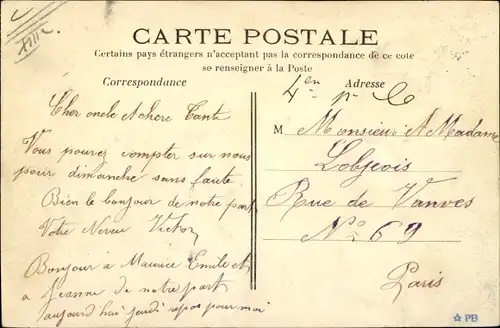 XIIIe
CARTE POSTALE
Certains pays étrangers n'acceptant pas la correspondance de ce cote
se renseigner à la Poste
Correspondance
Cher oncle et chere Tante
Vous pouvez compter sur nous
pour dimanche sans faute
Bien le bonjour de notre part
Votre Neveu Victor
Bonjour à Maurice Emile et
a Jeanne de notre part
aujourd'hui jeudi repos pour moi
Adresse
M Monsieur et Madame
Lobjeois
Rue de Vanves
No 69
Paris
PB